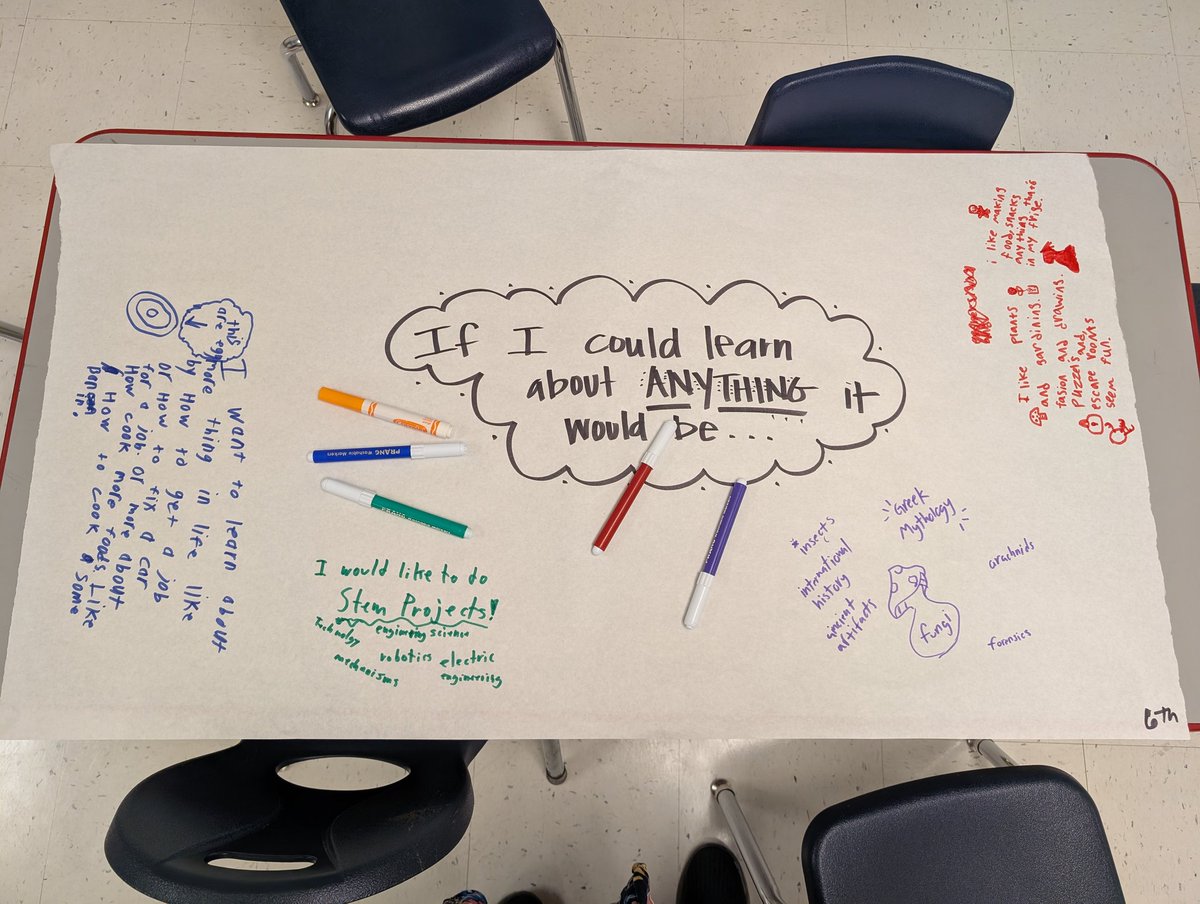 If I could learn
about ANYTHING it
would be....
I want to learn about
more thing in life like
by How to get a job
or How to fix a car
for a job or more about
How cook more foods Like
How to cook a some
in.
this
are egg
I would like to do
Stem Projects!
technology
engineering science
robotics
electric
engineering
mechanisms
Greek
Mythology
*insects
international
history
ancient
artifacts
fungi
arachnids
forensics
i like making
food, snacks
anything that's
in my frige.
I like plants
and gardining.
fasion and drawing.
Puzzel's and
escape rooms
seem fun.
6th
PRANG Washable Marker